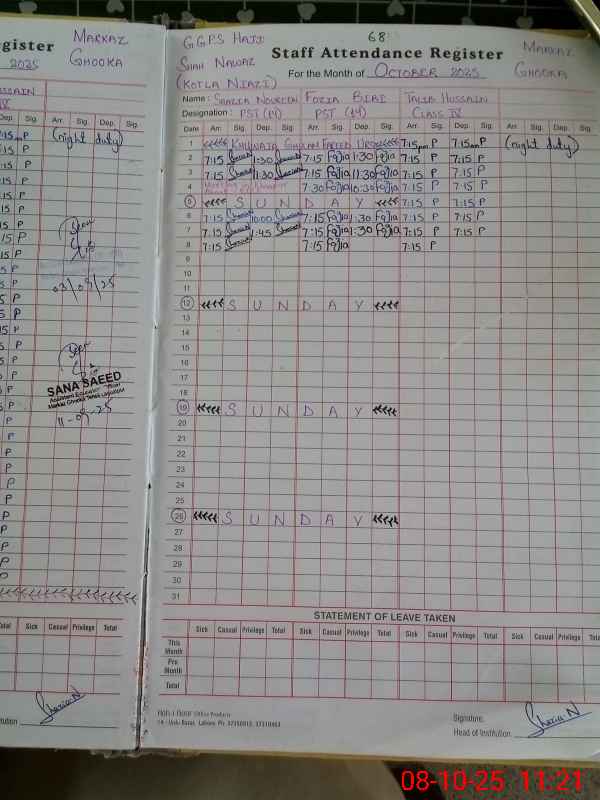 egister
MARKAZ
GHOOKA
2025
USSAIN
IV
Arr. Sig. Dep. Sig.
(night duty)
03/09/25
SANA SAEED
11-09-25
Total Sick Casual Privilege Total
GGPS HAJI
SHAH NAWAZ
(KOTLA NIAZI)
68
Staff Attendance Register
MARKAZ
GHOOKA
For the Month of OCTOBER 2025
Name : SHAZIA NOUREEN FOZIA BIBI TALIB HUSSAIN
Designation : PST (14) PST (14) CLASS IV
Date Arr. Sig. Dep. Sig. Arr. Sig. Dep. Sig. Arr. Sig. Dep. Sig. Arr. Sig. Dep. Sig.
1 KHUWAJA GHULAM FAREED URS 7:15pm P 7:15am P (night duty)
2 7:15 1:30 7:15 Fozia 1:30 Fozia 7:15 P 7:15 P
3 7:15 11:30 7:15 Fozia 11:30 Fozia 7:15 P 7:15 P
4 7:30 Fozia 10:30 Fozia 7:15 P 7:15 P
5 SUNDAY 7:15 P 7:15 P
6 7:15 10:00 7:15 Fozia 1:30 Fozia 7:15 P 7:15 P
7 7:15 1:45 7:15 Fozia 1:30 Fozia 7:15 P 7:15 P
8 7:15 7:15 Fozia 7:15 P
9
10
11
12 SUNDAY
13
14
15
16
17
18
19 SUNDAY
20
21
22
23
24
25
26 SUNDAY
27
28
29
30
31
STATEMENT OF LEAVE TAKEN
Sick Casual Privilege Total Sick Casual Privilege Total Sick Casual Privilege Total Sick Casual Privilege Total
This Month
Pre Month
Total
Office Products
14 - Urdu Bazar, Lahore. Ph:
Signature,
Head of Institution
Shazia N
08-10-25 11:21